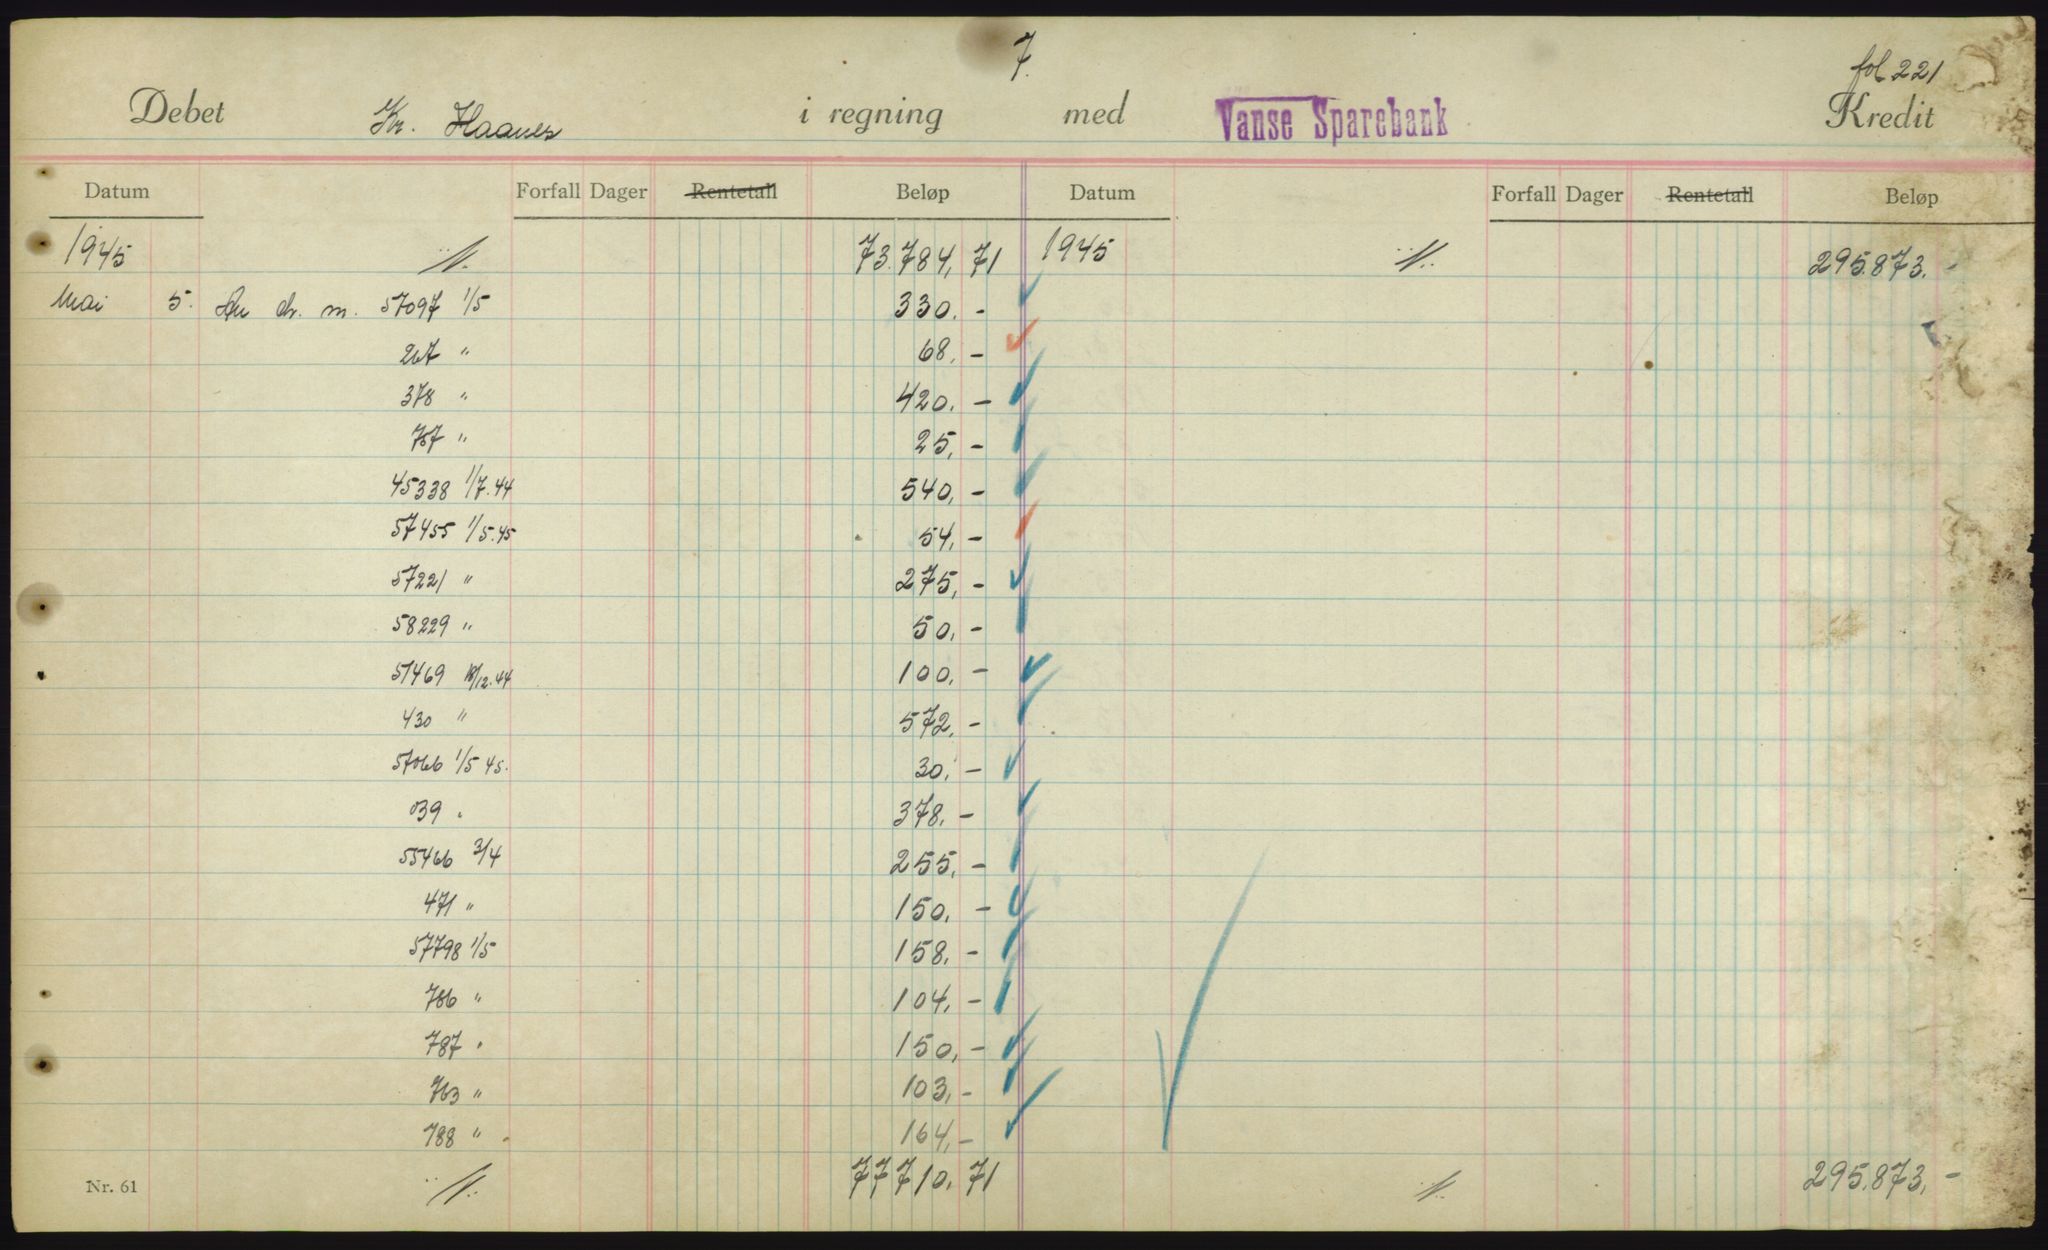 7.
fol. 221
Debet Kr. Haanes i regning med Vanse Sparebank Kredit
Datum Forfall Dager Rentetall Beløp Datum Forfall Dager Rentetall Beløp
1945 73.784,71 1945 295.873.-
Mai 5. m. 57097 1/5 330.-
267 " 68.-
378 " 420.-
767 " 25,-
45338 1/7.44 540,-
57455 1/5.45 54,-
57221 " 275,-
58229 " 50,-
51469 18/12.44 100,-
430 " 572,-
57066 1/5 45. 30,-
039 " 378.-
55466 3/4 255,-
471 " 150,-
57798 1/5 158,-
786 " 104,-
787 " 150,-
763 " 103,-
788 " 164,-
Nr. 61 77710.71 295.873,-